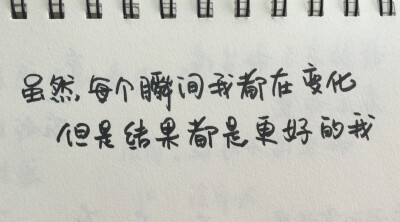 虽然每个瞬间我都在变化
但是结果都是更好的我